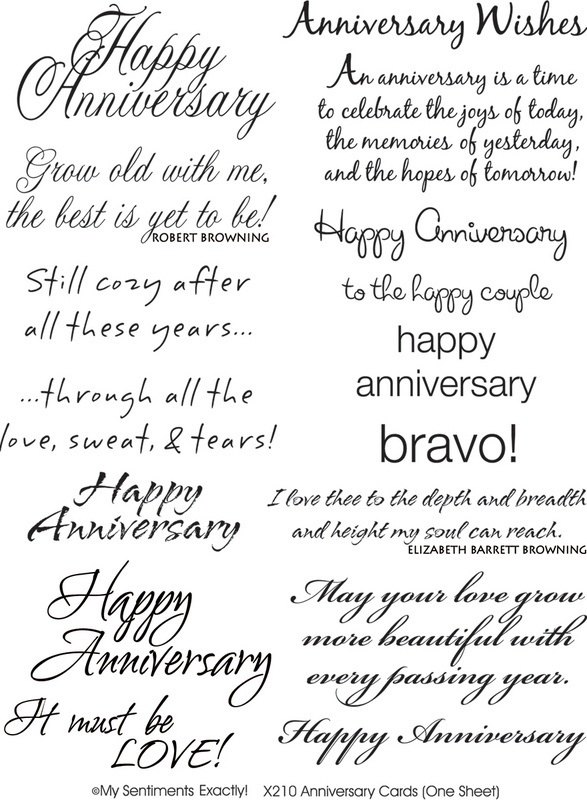 Happy
Anniversary
Grow old with me,
the best is yet to be!
ROBERT BROWNING
Still cozy after
all these years...
...through all the
love, sweat, & tears!
Happy
Anniversary
Happy
Anniversary
It must be
LOVE!
Anniversary Wishes
An anniversary is a time
to celebrate the joys of today,
the memories of yesterday,
and the hopes of tomorrow!
Happy Anniversary
to the happy couple
happy
anniversary
bravo!
I love thee to the depth and breadth
and height my soul can reach.
ELIZABETH BARRETT BROWNING
May your love grow
more beautiful with
every passing year.
Happy Anniversary
©My Sentiments Exactly! X210 Anniversary Cards (One Sheet)